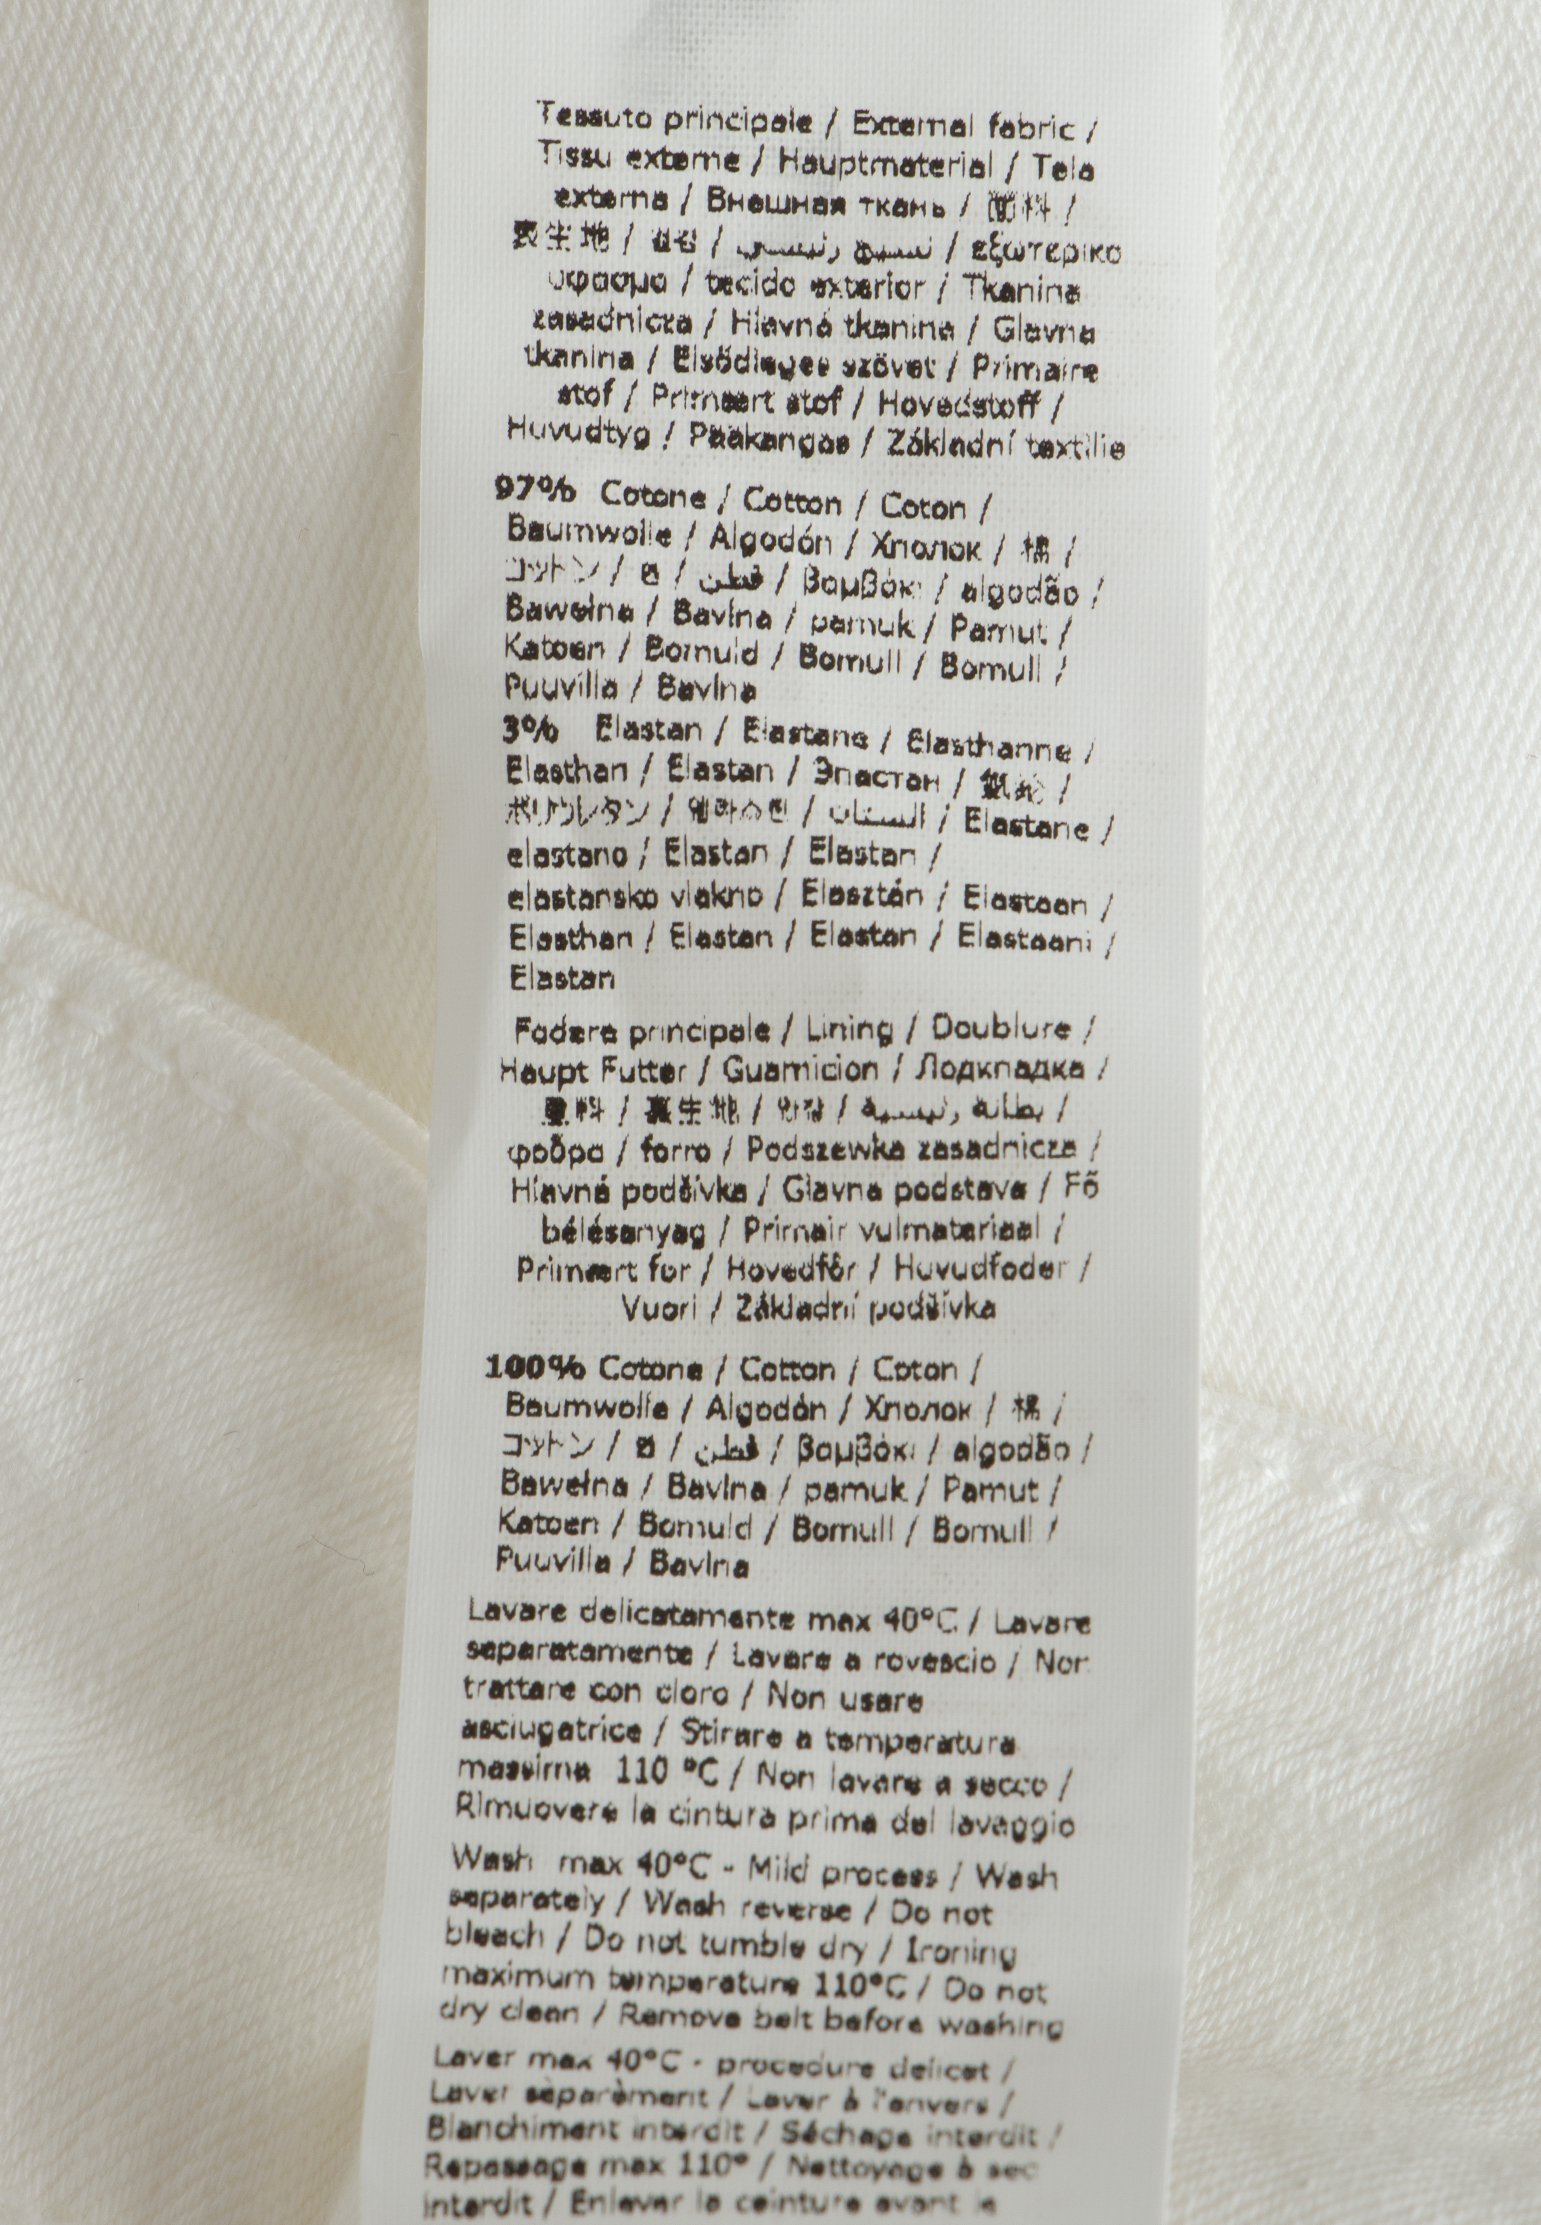 Tessuto principale / External fabric /
Tissu externe / Hauptmaterial / Tela
externa / Внешная ткань / 面料 /
表生地 / 겉감 / نسيج رئيسي / εξωτερικο
υφασμα / tecido exterior / Tkanina
zasadnicza / Hlavná tkanina / Glavna
tkanina / Elsődleges szövet / Primaire
stof / Primært stof / Hovedstoff /
Huvudtyg / Pääkangas / Základní textilie
97% Cotone / Cotton / Coton /
Baumwolle / Algodón / Хлопок / 棉 /
コットン / 면 / قطن / βαμβάκι / algodão /
Bawełna / Bavlna / pamuk / Pamut /
Katoen / Bomuld / Bomull / Bomull /
Puuvilla / Bavlna
3% Elastan / Elastane / Elasthanne /
Elasthan / Elastan / Эластан / 氨纶 /
ポリウレタン / 엘라스틴 / الستان / Elastane /
elastano / Elastan / Elastan /
elastansko vlakno / Elasztán / Elastaan /
Elasthan / Elastan / Elastan / Elastaani /
Elastan
Fodera principale / Lining / Doublure /
Haupt Futter / Guarnicion / Подкладка /
里料 / 裏生地 / 안감 / بطانة رئيسية /
φοδρα / forro / Podszewka zasadnicza /
Hlavná podšívka / Glavna podstava / Fő
bélésanyag / Primair vulmateriaal /
Primært for / Hovedfôr / Huvudfoder /
Vuori / Základní podšívka
100% Cotone / Cotton / Coton /
Baumwolle / Algodón / Хлопок / 棉 /
コットン / 면 / قطن / βαμβάκι / algodão /
Bawełna / Bavlna / pamuk / Pamut /
Katoen / Bomuld / Bomull / Bomull /
Puuvilla / Bavlna
Lavare delicatamente max 40°C / Lavare
separatamente / Lavare a rovescio / Non
trattare con cloro / Non usare
asciugatrice / Stirare a temperatura
massima 110 °C / Non lavare a secco /
Rimuovere la cintura prima del lavaggio
Wash max 40°C - Mild process / Wash
separately / Wash reverse / Do not
bleach / Do not tumble dry / Ironing
maximum temperature 110°C / Do not
dry clean / Remove belt before washing
Laver max 40°C - procedure delicat /
Laver séparément / Laver à l'envers /
Blanchiment interdit / Séchage interdit /
Repassage max 110° / Nettoyage à sec
interdit / Enlever la ceinture avant le